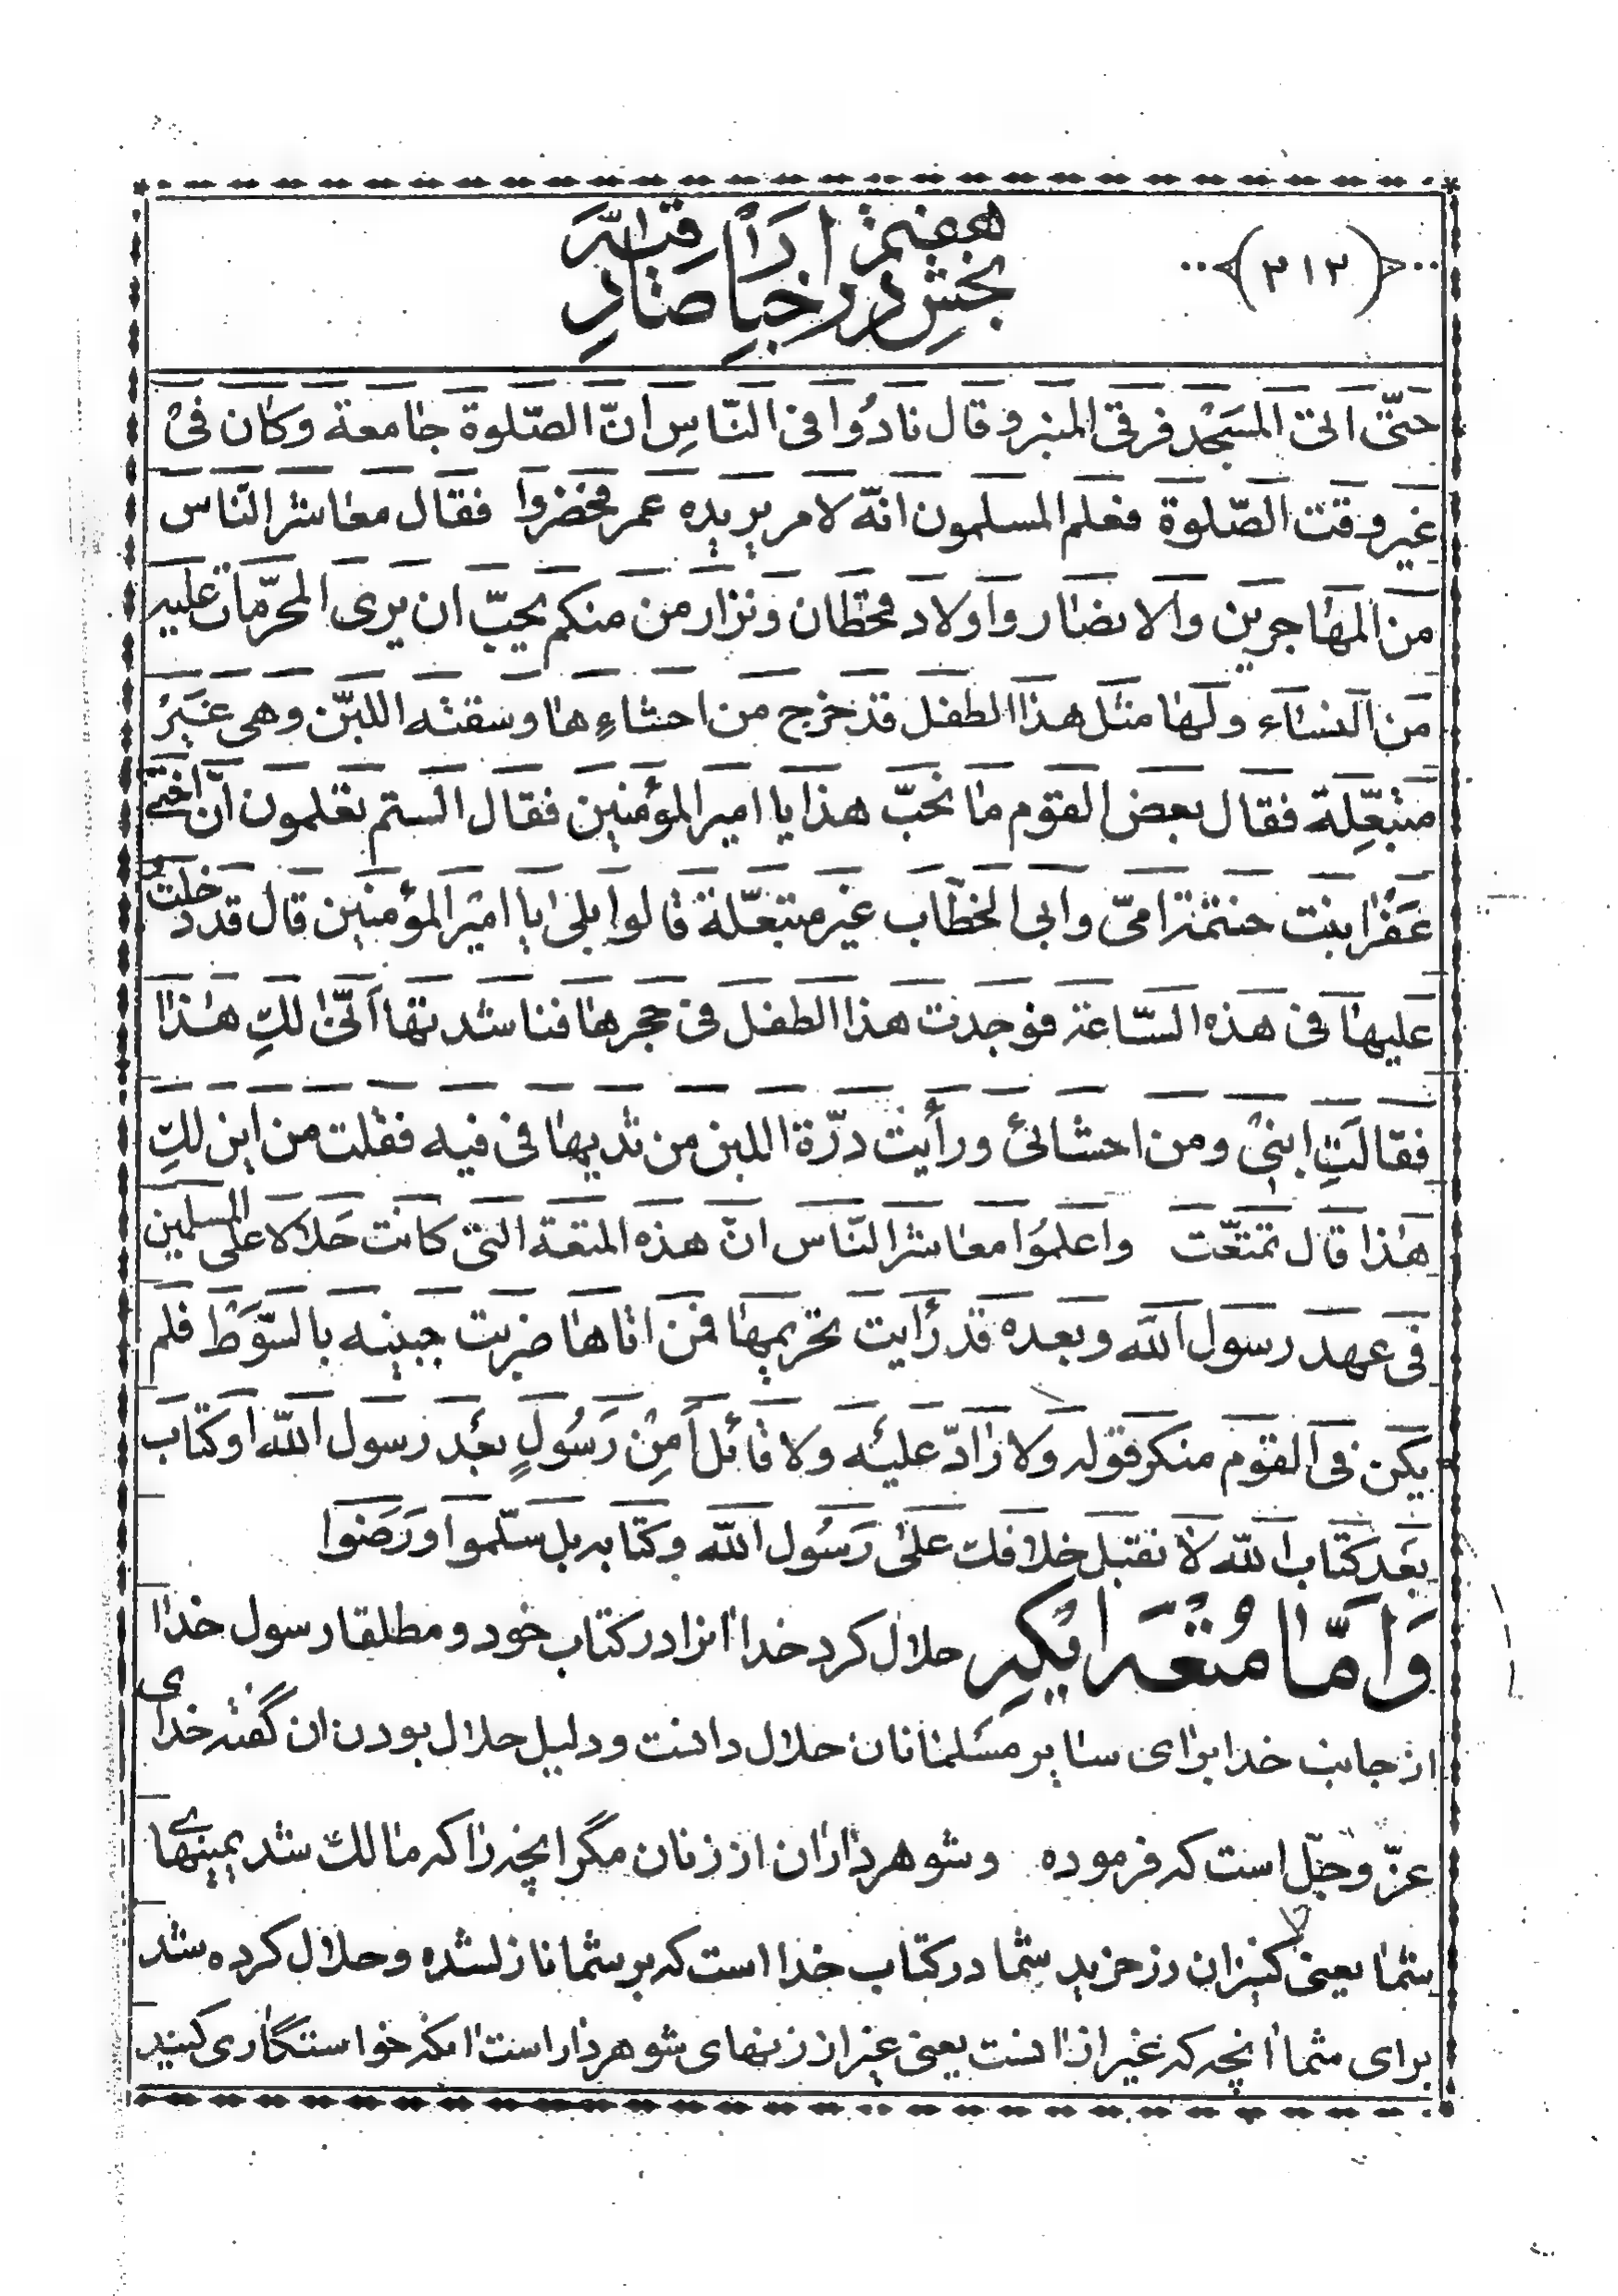 (٣١٢)
بخش هفتم در اخبار صادر از ائمه
حتّى اتى المسجد فرقى المنبر و قال نادُوا فى النّاسِ انّ الصّلوة جامعة وكان فى
غير وقت الصّلوة فعلم المسلمون انّه لامر يريده عمر فحضروا فقال معاشر النّاس
من المهاجرين والانصار واولاد قحطان ونزار من منكم يحبّ ان يرى المحرّمات عليه
من النساء ولها مثل هذا الطفل قد خرج من احشاءِها وسقته اللبن وهى غيرُ
متبعّلة فقال بعض القوم ما نحبّ هذا يا امير المؤمنين فقال الستم تعلمون ان اختى
عفرا بنت حنتمة امّى وابى الخطّاب غير متبعّلة قالوا بلى يا امير المؤمنين قال قد دخلتُ
عليها فى هذه السّاعة فوجدت هذا الطفل فى حجرها فناشدتها انّى لكِ هذا
فقالَتِ ابنى ومن احشائى ورأيت درّة اللبن من ثديها فى فيه فقلت من اين لكِ
هذا قال تمتعّت واعلمُوا معاشر النّاس انّ هذه المتعة التى كانت حَلالا على المسلمين
فى عهد رسول الله وبعده قد رأيت تحريمها فمن اتاها ضربت جبينه بالسّوَط فلم
يكن فى القوم منكر قوله ولا رادّ عليه ولا قائلاً مِنْ رَسُولٍ بعد رسول الله او كتاب
بعد كتاب الله لا نقبل خلافك على رَسُول الله وكتابه بل سلّموا ورَضوا
وَامّا مُتعَه ايكِه حلال كرد خدا انرا در كتاب خود و مطلقا رسول خدا
از جانب خدا براى ساير مسلمانان حلال دانست و دليل حلال بودن ان گفته خداى
عزّ وجلّ است كه فرموده وشوهرداران از زنان مگر انچه را كه مالك شد يمينهاى
شما يعنى كنيزان زرخريد شما در كتاب خدا است كه بر شما نازلشده و حلال كرده شد
براى شما انچه كه غير از انست يعنى غير از زنهاى شوهردار است اينكه خواستگارى كنيد